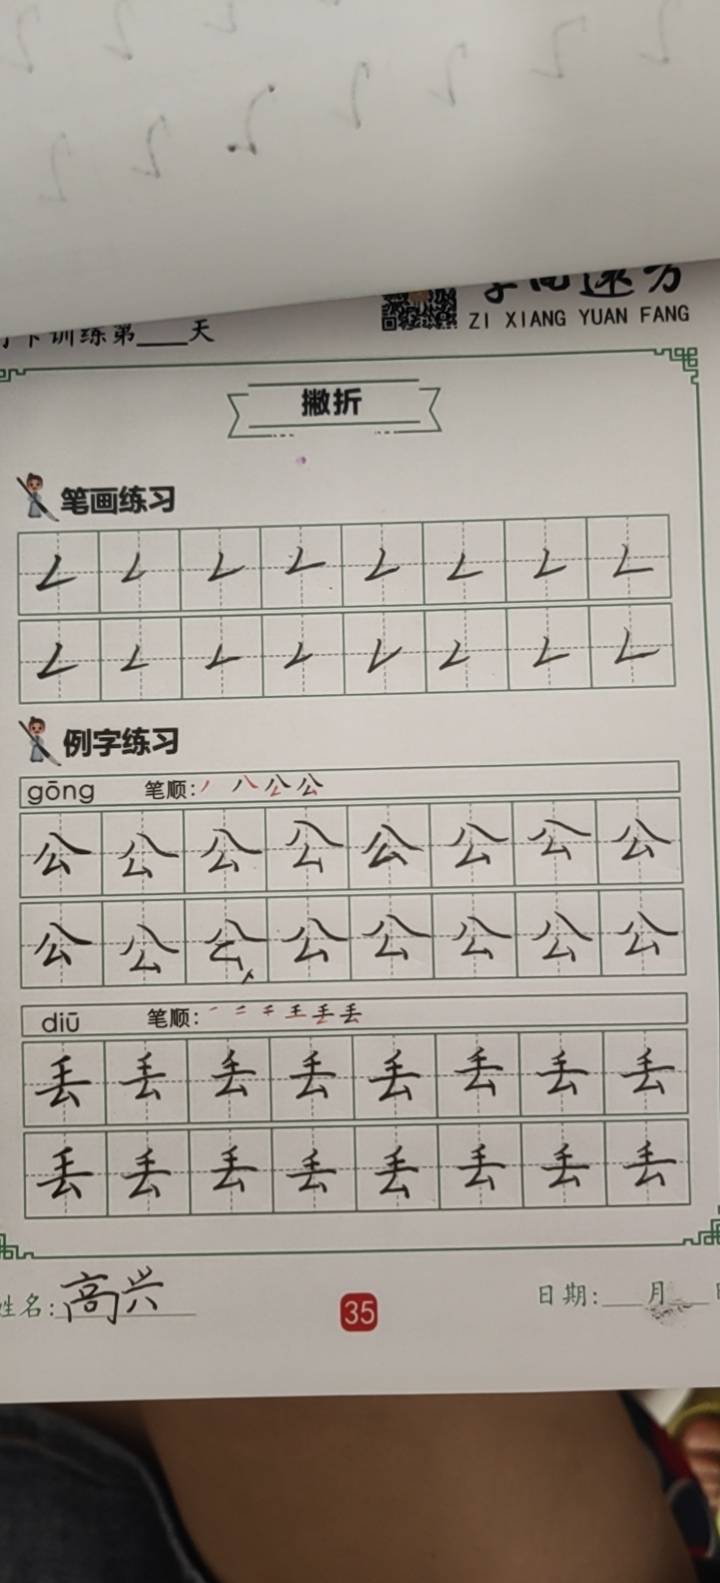 训练第___天
ZI XIANG YUAN FANG
撇折
笔画练习
例字练习
gōng 笔顺:
公公公公公公公公
公公公公公公公公
diū 笔顺:
丢丢丢丢丢丢丢丢
丢丢丢丢丢丢丢丢
姓名:高兴
35
日期:___月___